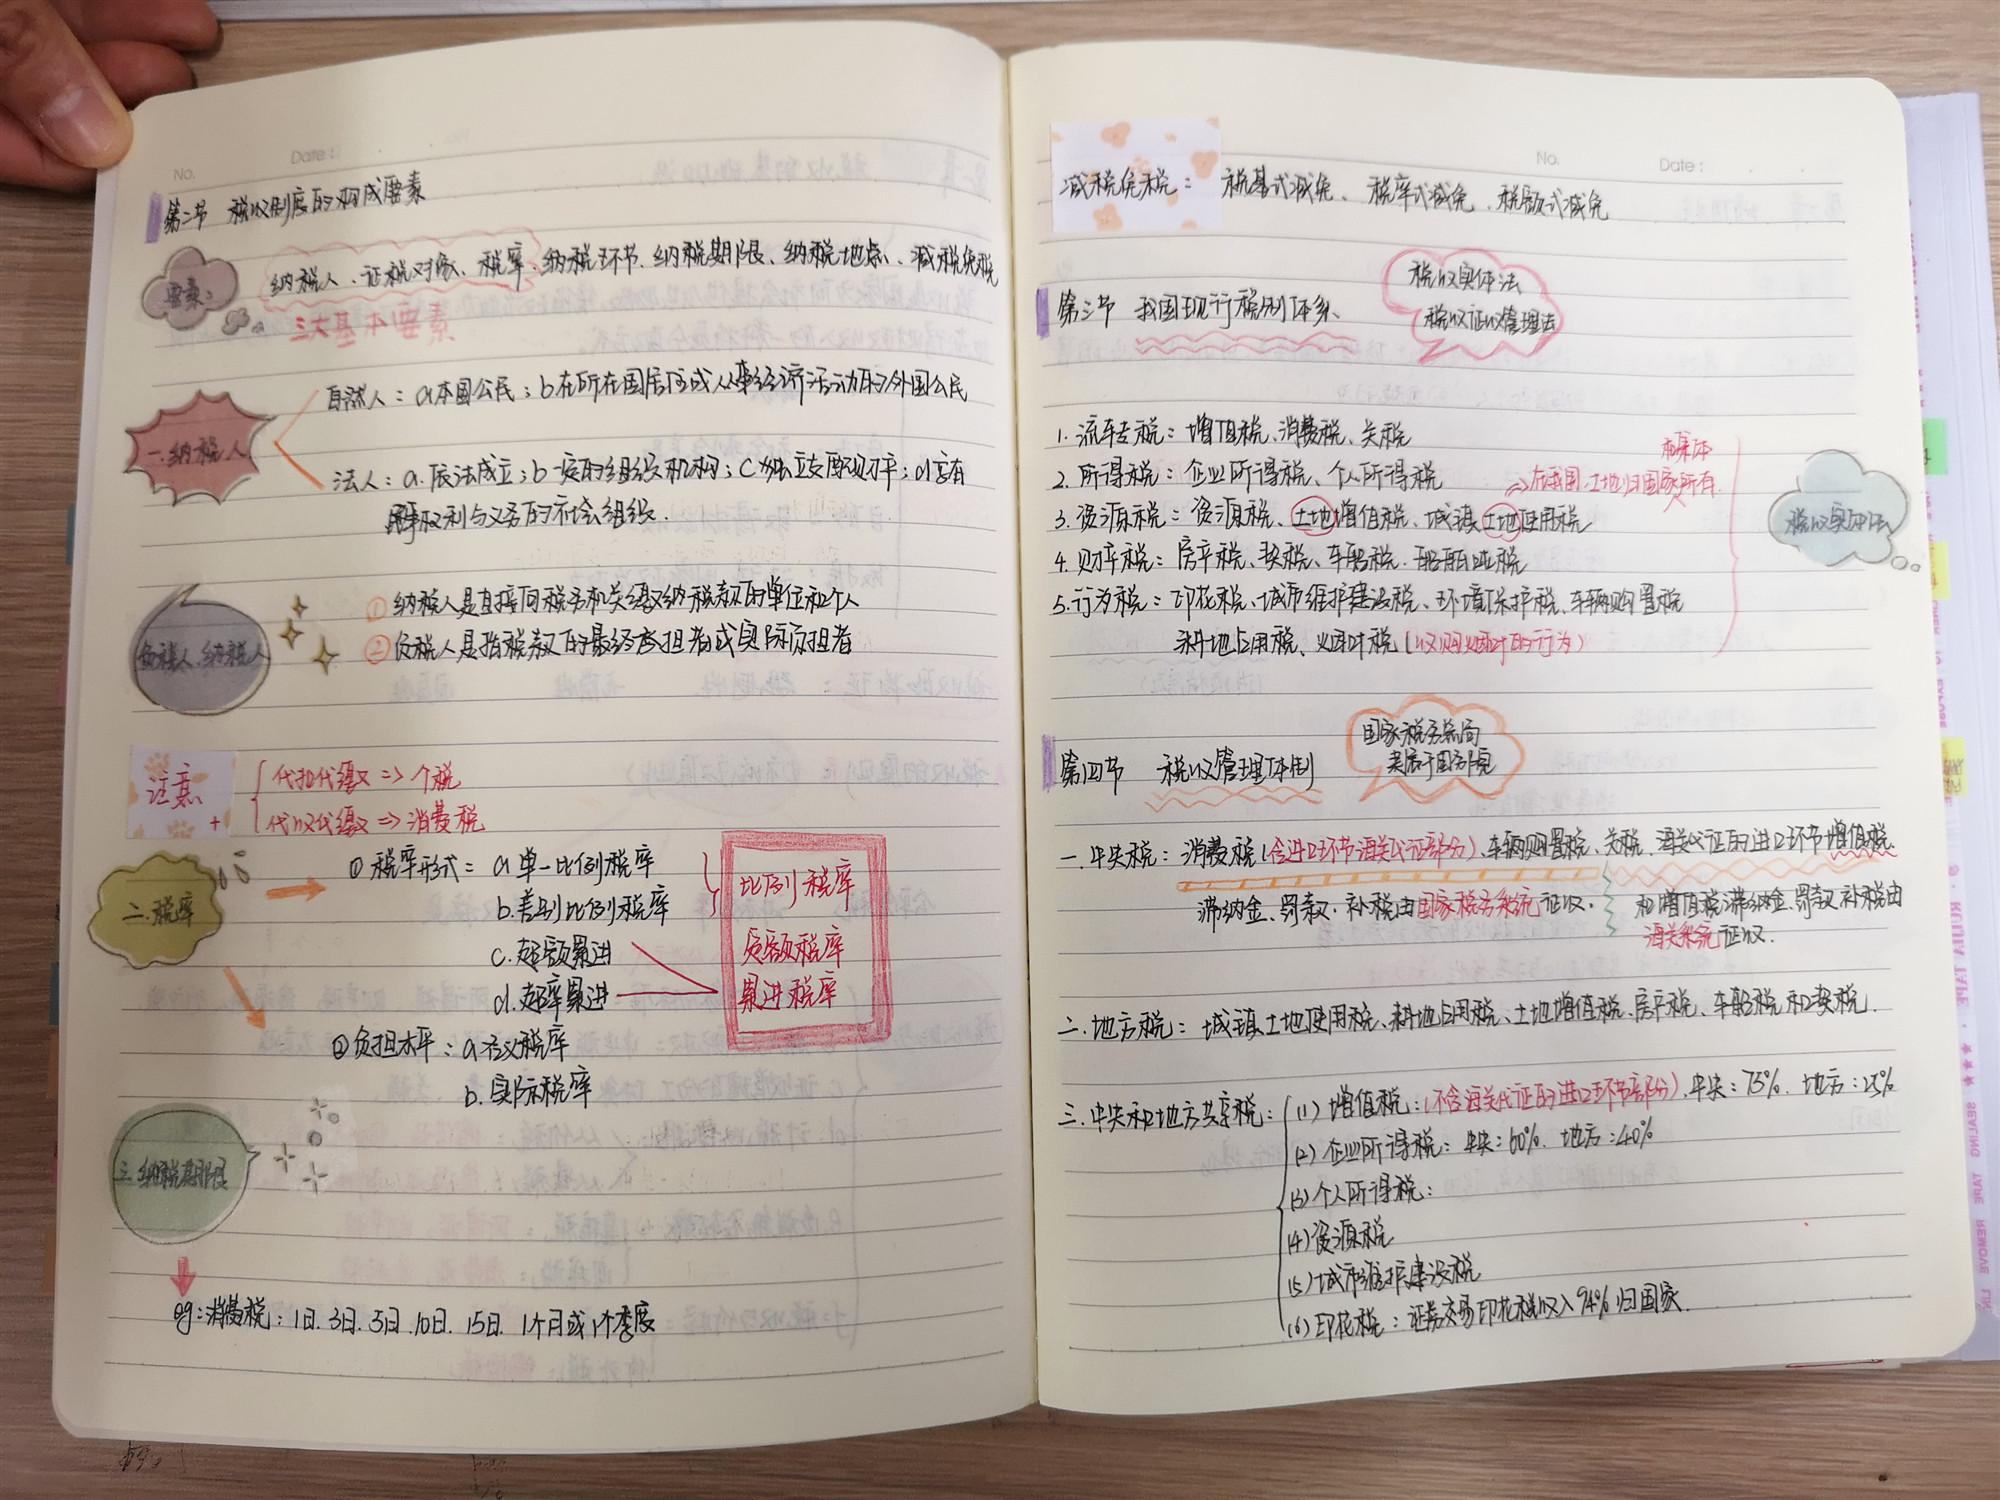 No.
Date:
第二节 税收制度的构成要素
要素:
纳税人、证税对象、税率、纳税环节、纳税期限、纳税地点、减税免税
三大基本要素
一.纳税人
自然人:a本国公民;b在所在国居住或从事经济活动的外国公民
法人:a.依法成立;b一定的组织机构;c独立支配财产;d享有
权利与义务的社会组织.
负税人、纳税人
①纳税人是直接向税务机关缴纳税款的单位和个人
②负税人是指税款的最终承担者或实际负担者
注意
代扣代缴=>个税
代收代缴=>消费税
二.税率
①税率形式:a单一比例税率
b.差别比例税率
c.超额累进
d.超率累进
比例税率
定额税率
累进税率
②负担水平:a名义税率
b.实际税率
三.纳税期限
eg:消费税:1日.3日.5日.10日.15日.1个月或1个季度
No.
Date:
减税免税: 税基式减免、税率式减免、税额式减免
第三节 我国现行税制体系
税收实体法
税收征收管理法
1.流转税:增值税、消费税、关税
2.所得税:企业所得税、个人所得税
=>在我国,土地归国家所有
和集体
3.资源税:资源税、土地增值税、城镇土地使用税
4.财产税:房产税、契税、车船税.船舶吨税
5.行为税:印花税、城市维护建设税、环境保护税、车辆购置税
耕地占用税、烟叶税(收购烟叶的行为)
税收实体法
第四节 税收管理体制
国家税务总局
隶属于国务院
一.中央税:消费税(含进口环节海关代证部分)、车辆购置税、关税、海关代证的进口环节增值税
滞纳金、罚款.补税由国家税务系统征收.
和增值税滞纳金、罚款补税由
海关系统征收.
二.地方税:城镇土地使用税、耕地占用税、土地增值税、房产税、车船税和契税.
三.中央和地方共享税:(1)增值税:(不含海关代证的进口环节部分).中央:75%.地方:25%
(2)企业所得税:中央:60%.地方:40%
(3)个人所得税:
(4)资源税
(5)城市维护建设税
(6)印花税:证券交易印花税收入94%归国家.